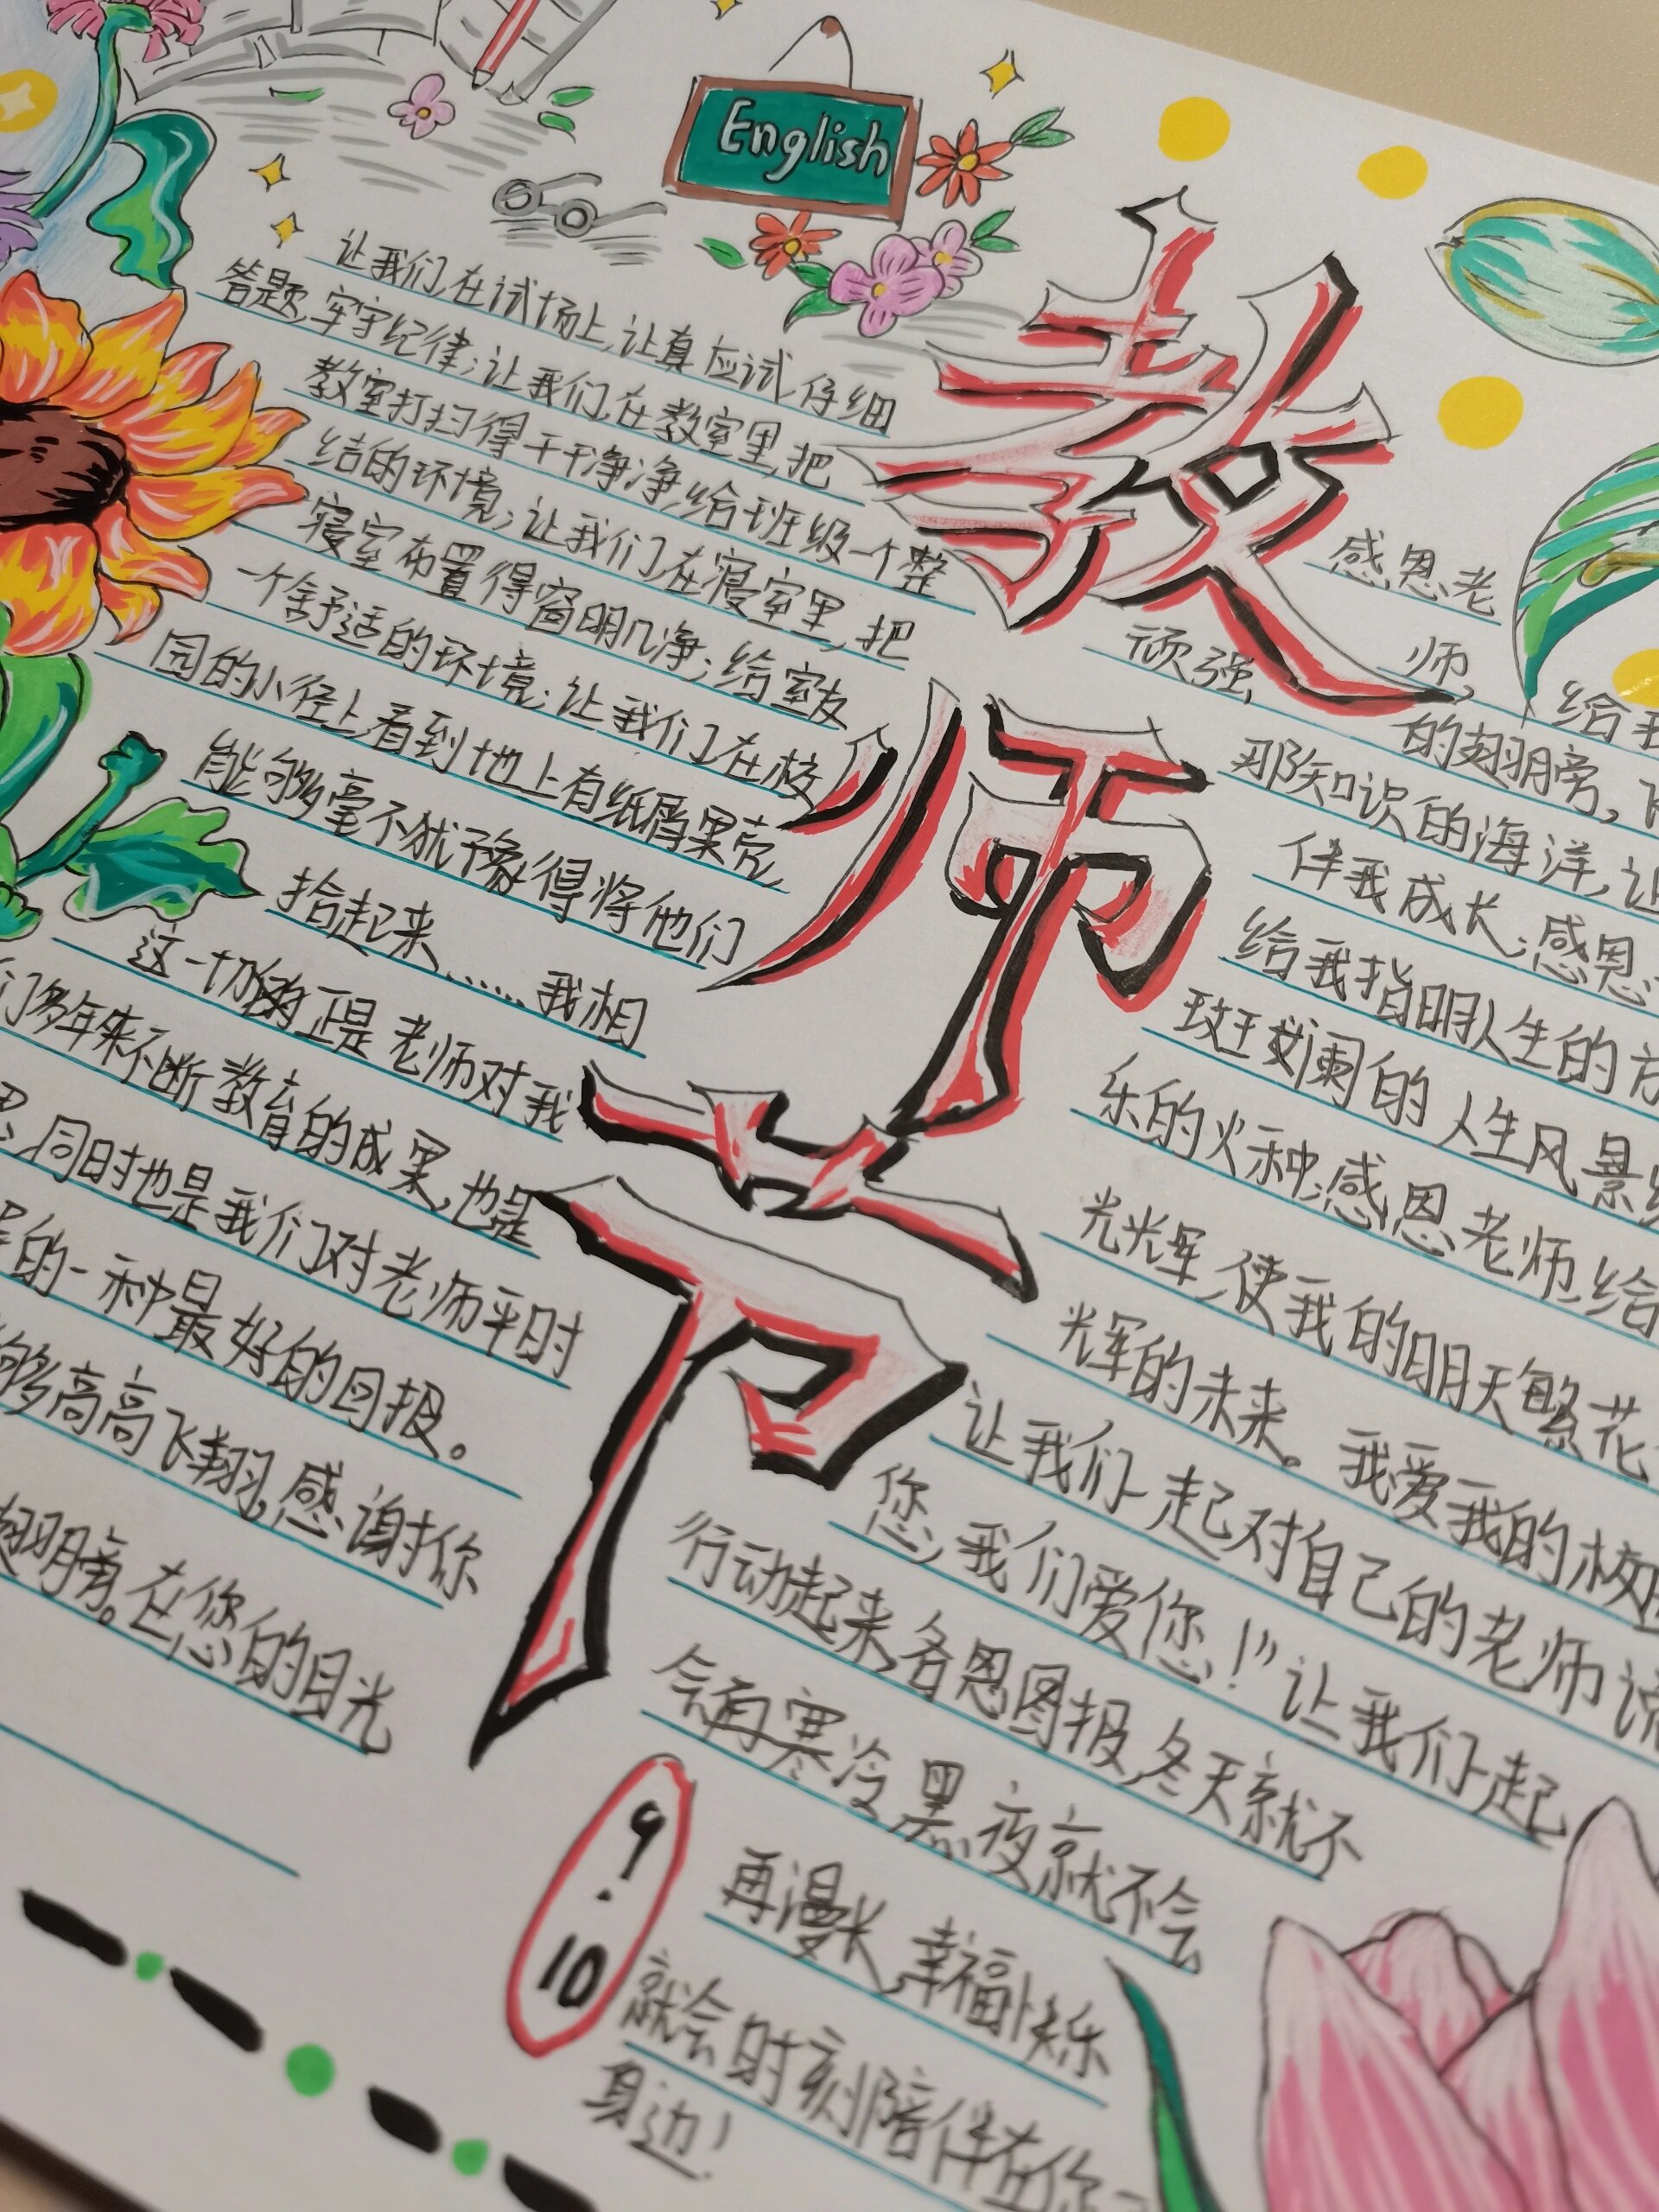 English
教师节
让我们在试场上,让真应试,仔细
答题,牢守纪律;让我们在教室里,把
教室打扫得干干净净,给班级一个整
结的环境;让我们在寝室里,把
寝室布置得窗明几净;给室友
一个舒适的环境;让我们在校
园的小径上看到地上有纸屑果壳,
能够毫不犹豫得将他们
拾起来......我相
这一切的正是老师对我
们多年来不断教育的成果,也是
同时也是我们对老师平时
的一种最好的回报。
够高高飞翔,感谢你
翅膀。在您的目光
9.10
感恩老
师,给我
顽强
的翅膀旁,飞
那知识的海洋,让
伴我成长;感恩
给我指明人生的方
斑斑斓阑的人生风景线
乐的火种;感恩老师给
光光辉,使我的明天繁花
光辉的未来。我爱我的校园
让我们一起对自己的老师说
您,我们爱您!”让我们一起
行动起来,各恩图报,冬天就不
会再寒冷,黑夜就不会
再漫长,幸福快乐
就会时刻陪伴在你
身边!